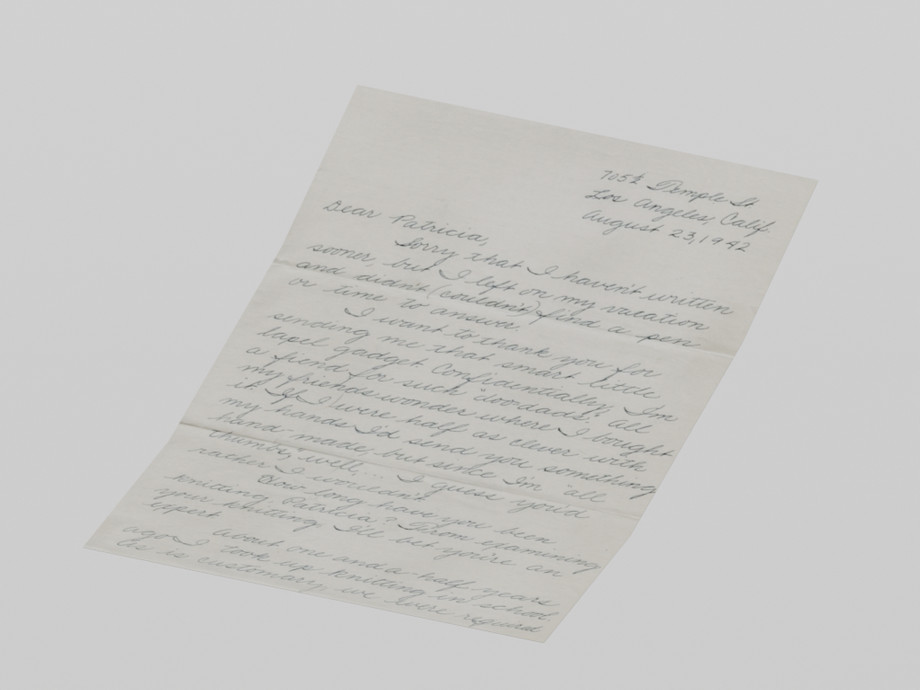 705½ Temple St
Los Angeles, Calif.
August 23, 1942
Dear Patricia,
Sorry that I haven't written
sooner, but I left on my vacation
and didn't (couldn't) find a pen
or time to answer.
I want to thank you for
sending me that smart little
lapel gadget. Confidentially, I'm
a fiend for such "doodads". All
my friends wonder where I bought
it. If I were half as clever with
my hands I'd send you something
hand-made, but since I'm "all
thumbs," well.... I guess you'd
rather I wouldn't.
How long have you been
knitting, Patricia? From examining
your knitting I'll bet you're an
expert.
About one and a half years
ago I took up knitting in school.
As is customary, we were required